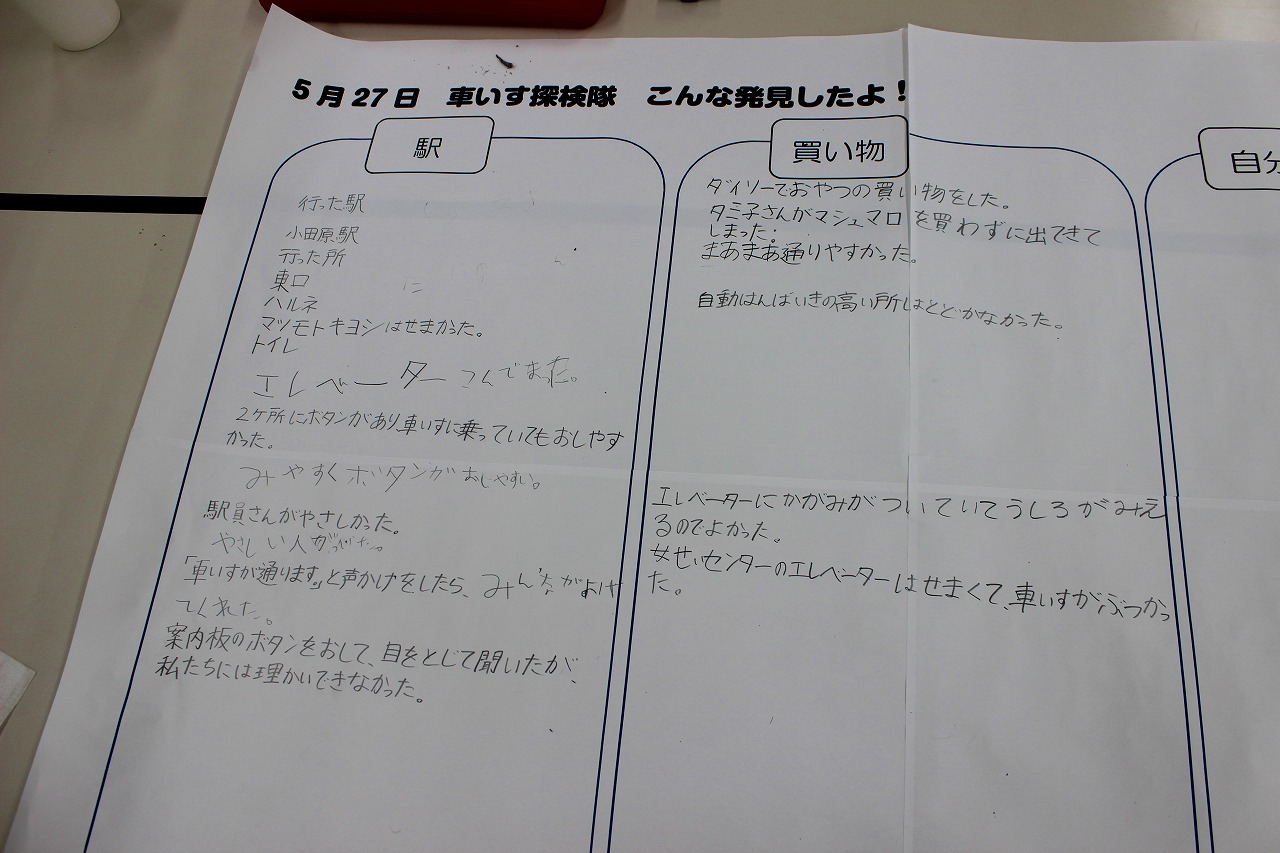 5月27日 車いす探検隊 こんな発見したよ!
駅
行った駅
小田原駅
行った所
東口
ハルネ
マツモトキヨシはせまかった。
トイレ
エレベーター こんでまった。
2ケ所にボタンがあり、車いすに乗っていてもおしやす
かった。
みやすくボタンがおしやすい。
駅員さんがやさしかった。
やさしい人が
「車いすが通ります。」と声かけをしたら、みんながよけ
てくれた。
案内板のボタンをおして、目をとじて聞いたが、
私たちには理かいできなかった。
買い物
ダイソーでおやつの買い物をした。
タミ子さんがマシュマロを買わずに出てきて
しまった。
まあまあ通りやすかった。
自動はんばいきの高い所はとどかなかった。
エレベーターにかがみがついていてうしろがみえ
るのでよかった。
女せいセンターのエレベーターはせまくて、車いすがぶつかっ
た。
自分